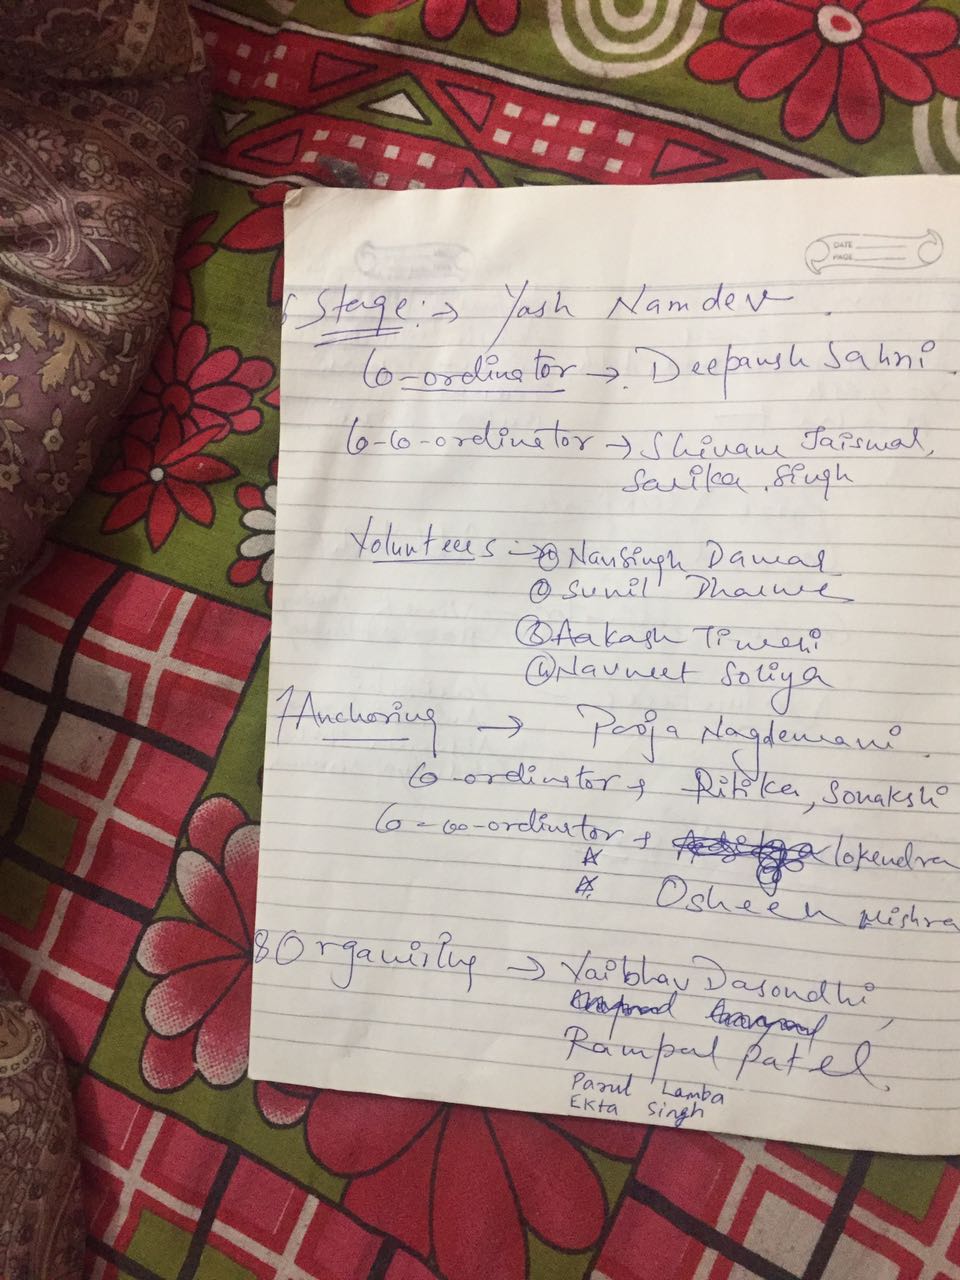 DATE
PAGE
6 Stage :→ Yash Namdev
Co-ordinator → Deepansh Sahni
Co-Co-ordinator → Shivam Jaiswal,
Sarika Singh
Volunteers :→ ① Nansingh Dawar
② Sunil Dhaurve
③ Aakash Tiwari
④ Navneet Soliya
7 Anchoring → Pooja Nagdewani
Co-ordinator → Ritika, Sonakshi
Co-co-ordinator → lokendra
Osheen Mishra
8 Organising → Vaibhav Dasondhi,
Rampal Patel,
Parul Lamba
Ekta Singh